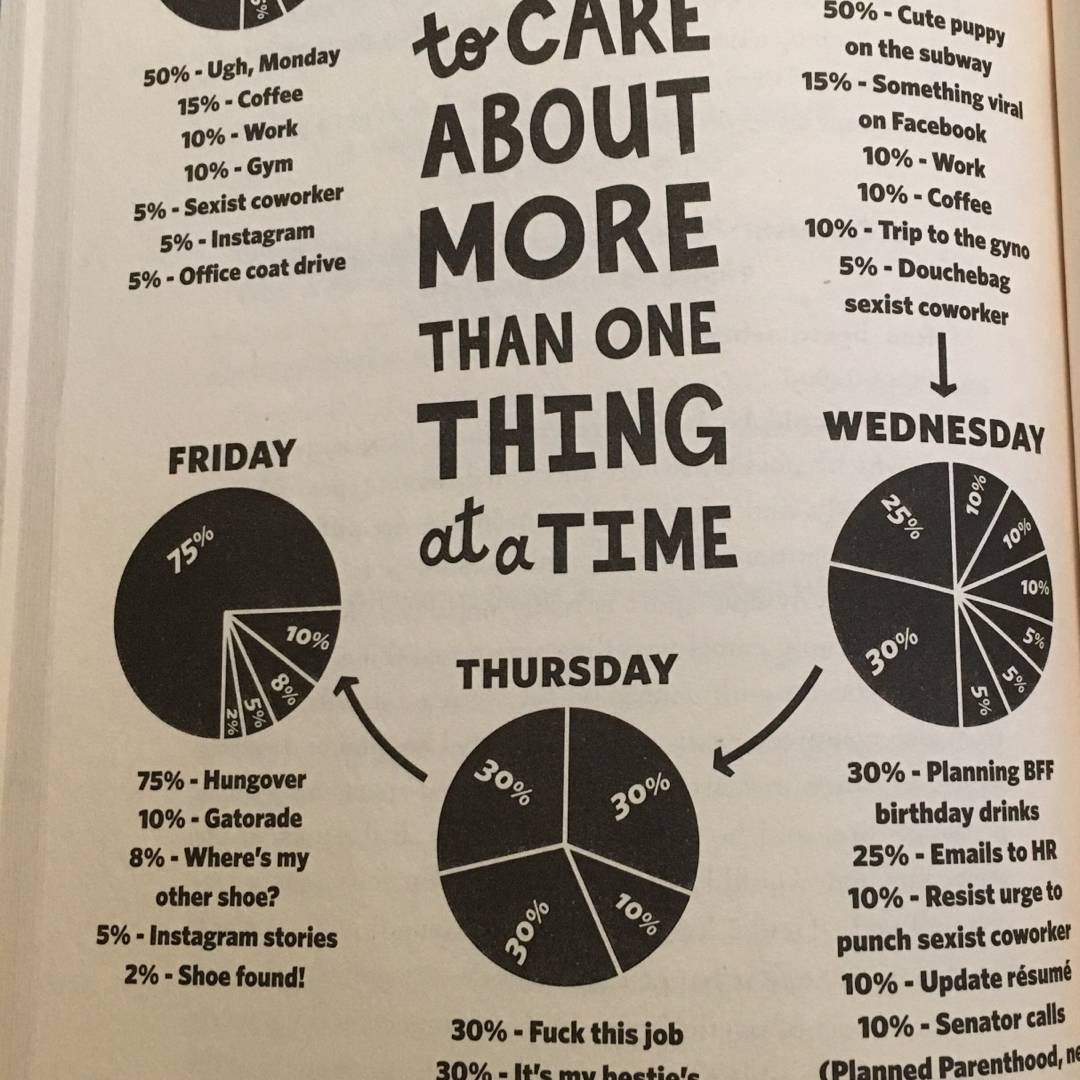 5%
50% - Ugh, Monday
15% - Coffee
10% - Work
10% - Gym
5% - Sexist coworker
5% - Instagram
5% - Office coat drive
to CARE
ABOUT
MORE
THAN ONE
THING
at a TIME
50% - Cute puppy
on the subway
15% - Something viral
on Facebook
10% - Work
10% - Coffee
10% - Trip to the gyno
5% - Douchebag
sexist coworker
WEDNESDAY
10%
10%
10%
5%
5%
5%
30%
25%
30% - Planning BFF
birthday drinks
25% - Emails to HR
10% - Resist urge to
punch sexist coworker
10% - Update résumé
10% - Senator calls
(Planned Parenthood,
THURSDAY
30%
30%
10%
30%
30% - Fuck this job
30% - It's my bestie's
FRIDAY
75%
10%
8%
5%
2%
75% - Hungover
10% - Gatorade
8% - Where's my
other shoe?
5% - Instagram stories
2% - Shoe found!